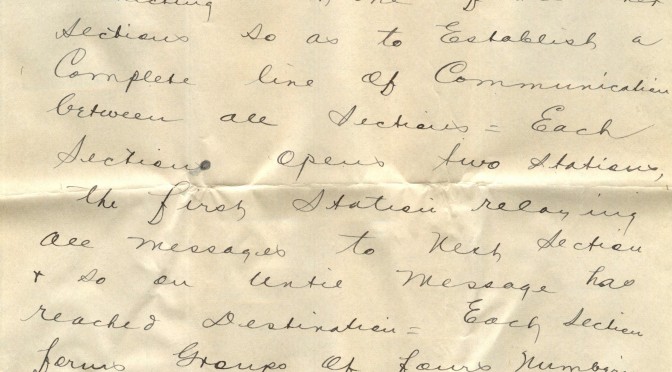 Sections so as to Establish a
Complete line of Communication
between all Sections = Each
Sections opens two Stations,
the first Station relaying
all messages to Next Section
+ so on Until Message has
reached Destination = Each Section
forms Groups of fours